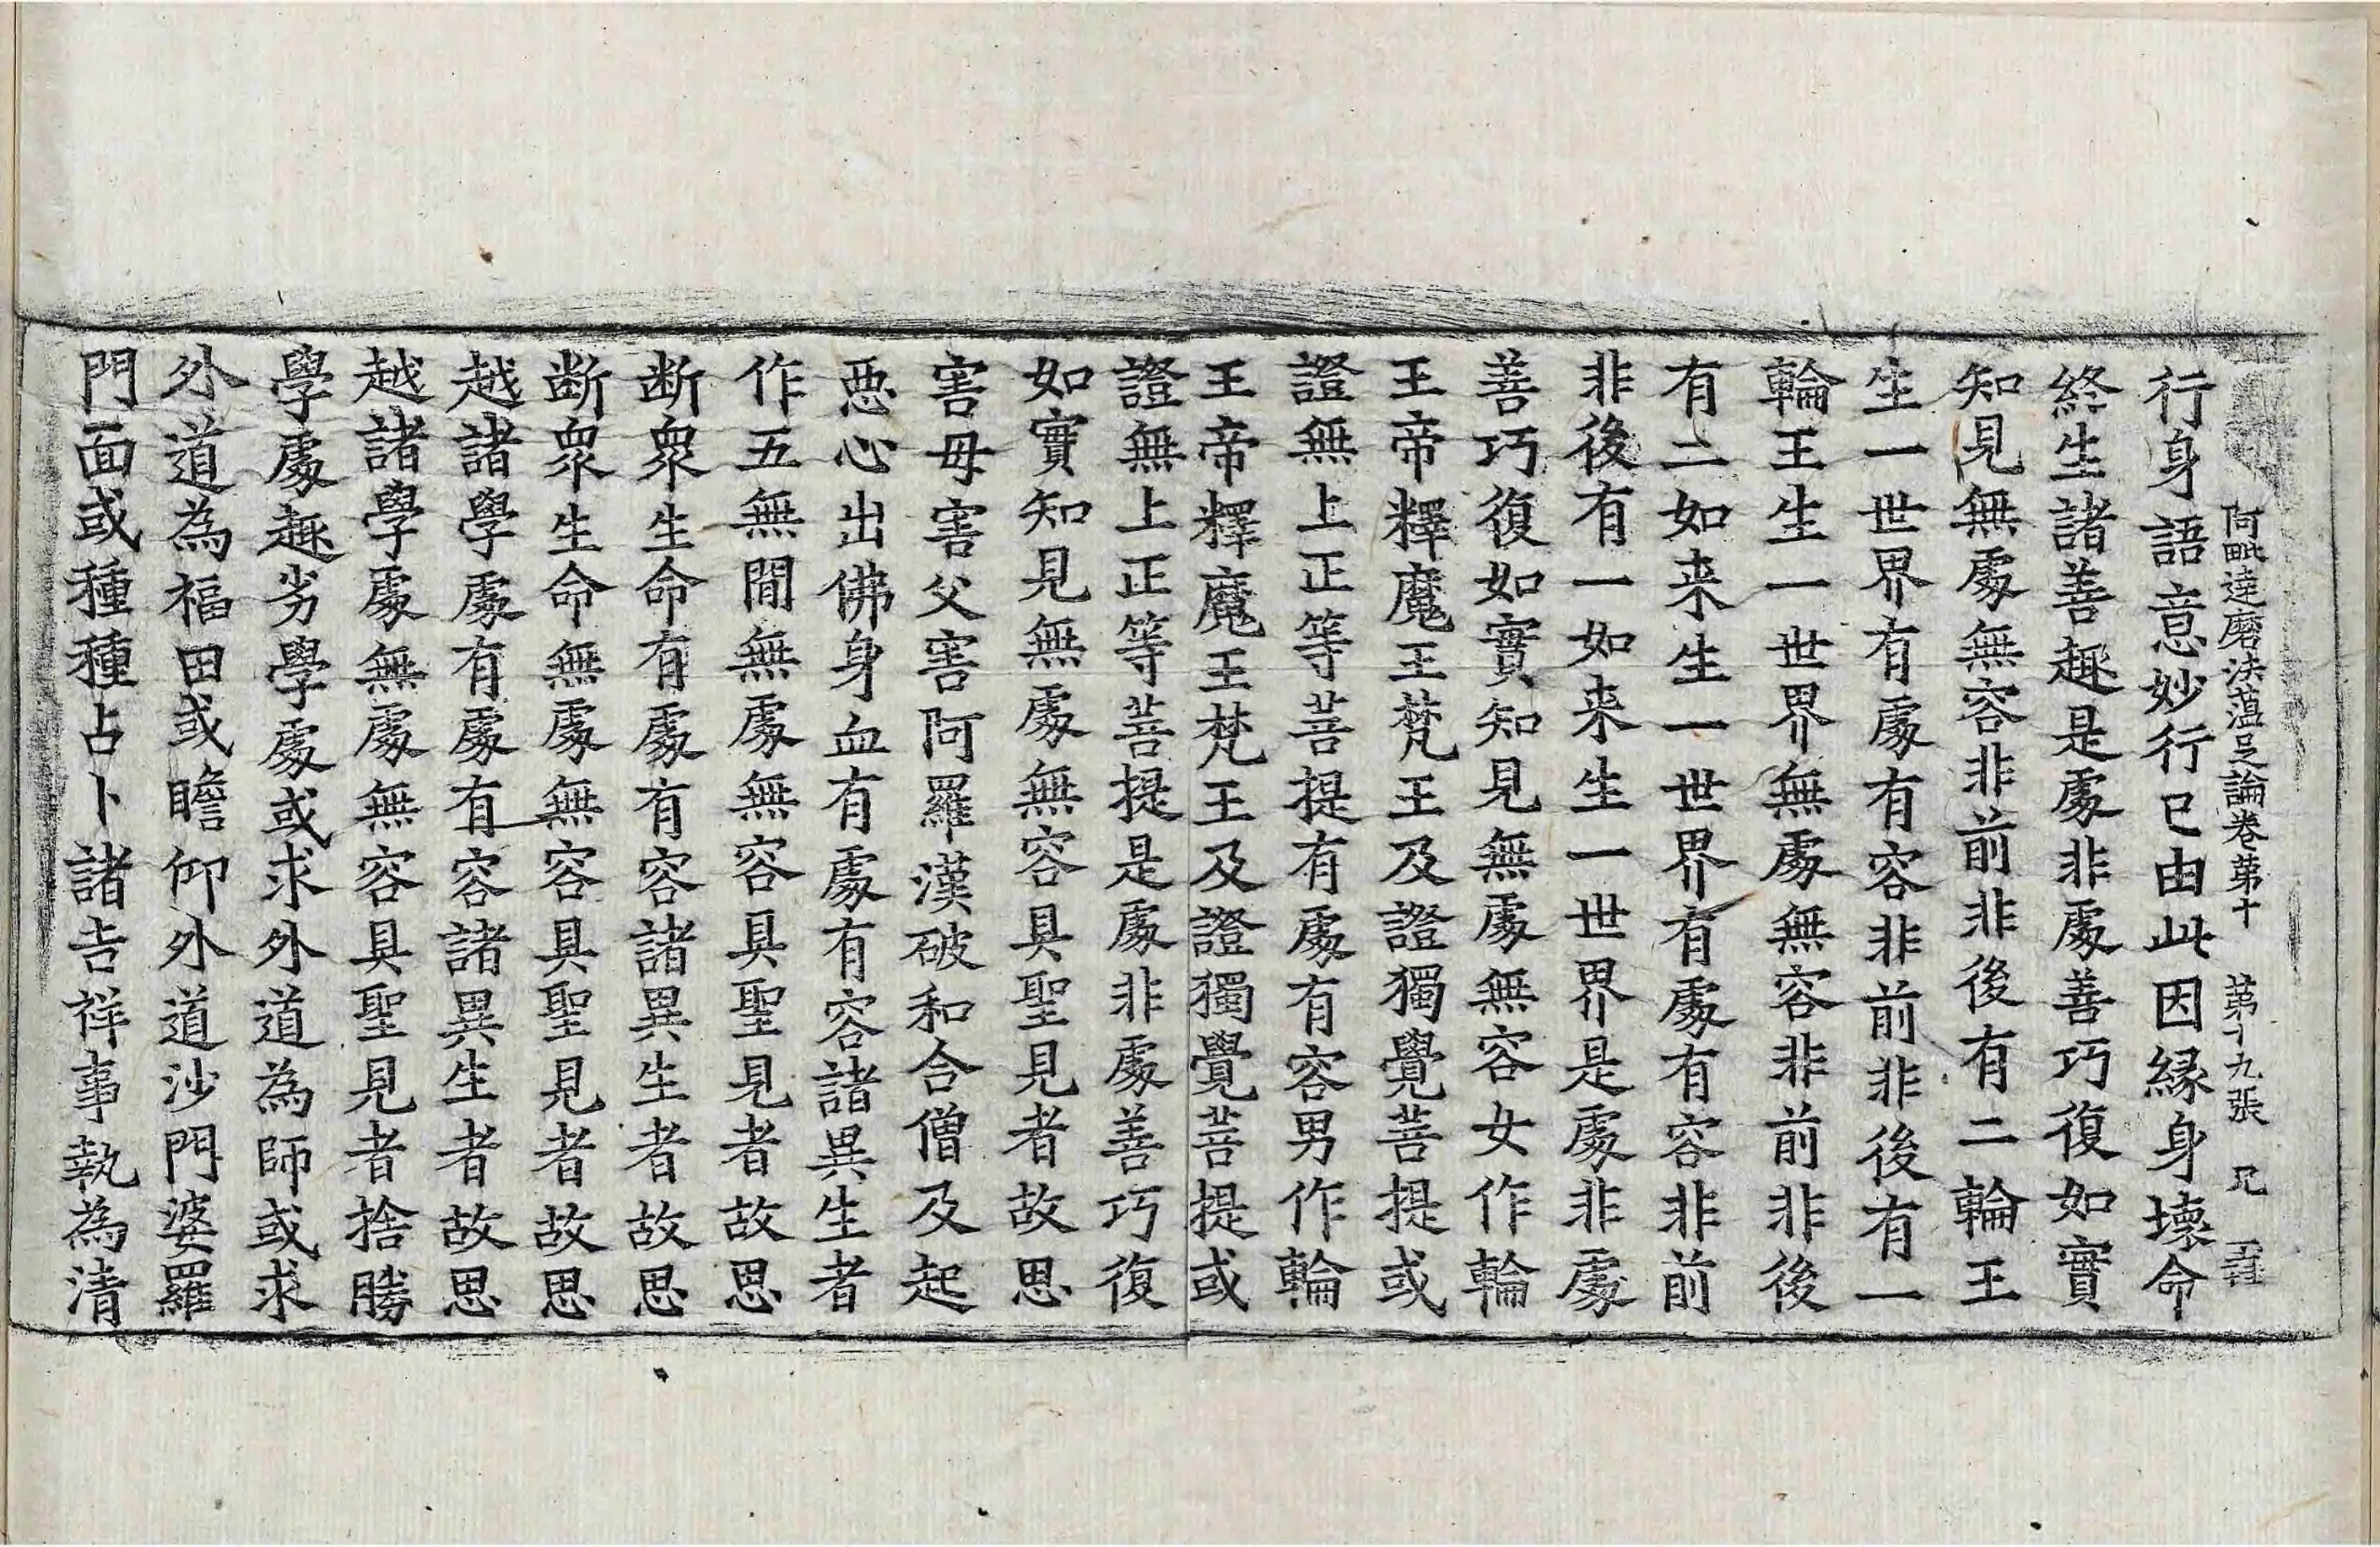 阿毗達磨法蘊足論卷第十 第十九張 兄
行身語意妙行已由此因縁身壞命
終生諸善趣是處非處善巧復如實
知見無處無容非前非後有二輪王
生一世界有處有容非前非後有一
輪王生一世界無處無容非前非後
有二如来生一世界有處有容非前
非後有一如来生一世界是處非處
善巧復如實知見無處無容女作輪
王帝釋魔王梵王及證獨覺菩提或
證無上正等菩提有處有容男作輪
王帝釋魔王梵王及證獨覺菩提或
證無上正等菩提是處非處善巧復
如實知見無處無容具聖見者故思
害母害父害阿羅漢破和合僧及起
惡心出佛身血有處有容諸異生者
作五無間無處無容具聖見者故思
断衆生命有處有容諸異生者故思
断衆生命無處無容具聖見者故思
越諸學處有處有容諸異生者故思
越諸學處無處無容具聖見者捨勝
學處趣劣學處或求外道為師或求
外道為福田或瞻仰外道沙門婆羅
門面或種種占卜諸吉祥事執為清